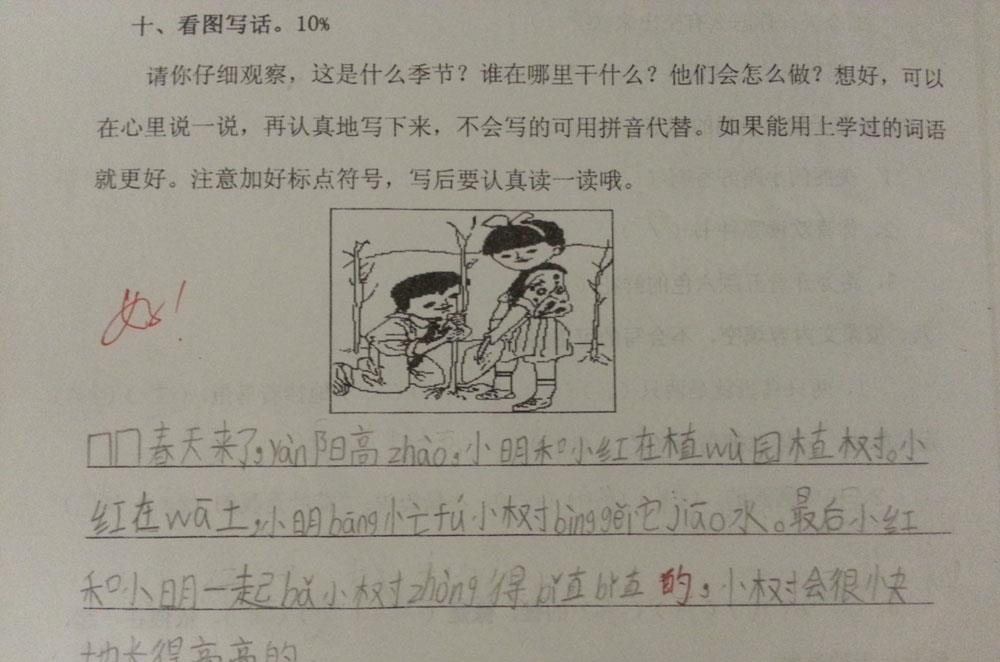 十、看图写话。10%
请你仔细观察，这是什么季节？谁在哪里干什么？他们会怎么做？想好，可以
在心里说一说，再认真地写下来，不会写的可用拼音代替。如果能用上学过的词语
就更好。注意加好标点符号，写后要认真读一读哦。
好！
春天来了，yàn阳高zhào，小明和小红在植wù园植树。小
红在wā土，小明bāng忙fú小树bìnggěi它jiāo水。最后小红
和小明一起bǎ小树zhòng得bǐ直bǐ直的，小树会很快
地长得高高的